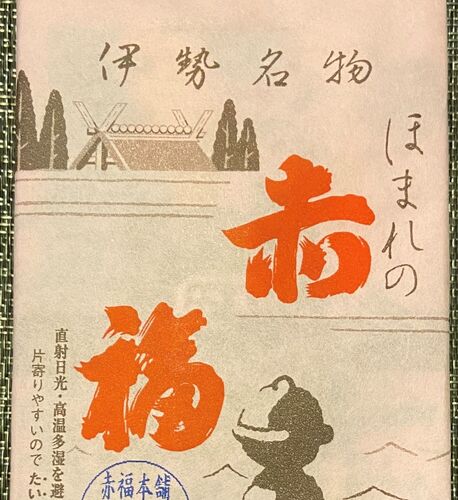 伊勢名物
ほまれの
赤福
直射日光・高温多湿を避
片寄りやすいので たい
赤福本舗